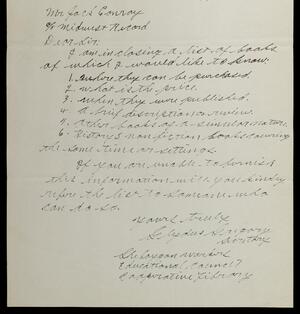 Mr Jack Conroy
% Midwest Record
Dear Sir.
I am inclosing a list of books
of which I would like to know.
1. where they can be purchased.
2. what is the price.
3. when they were published.
4. a brief description or review.
5. other books of a similar nature.
6. History & nonfiction books covering
the same time or settings.
If you are unable to furnish
this information will you kindly
refere the list to someone who
can do so.
yours truly
Gregory
Educational Council
Cooperative Library